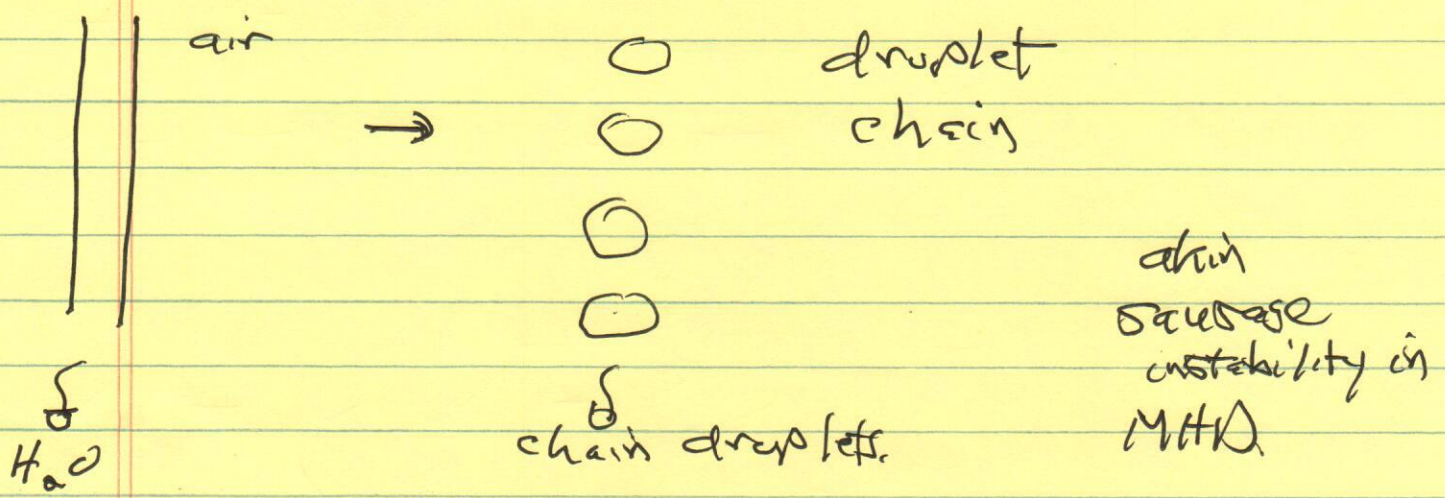 air
→
droplet
chain
akin
sausage
instability in
MHD.
H₂O
chain droplets.